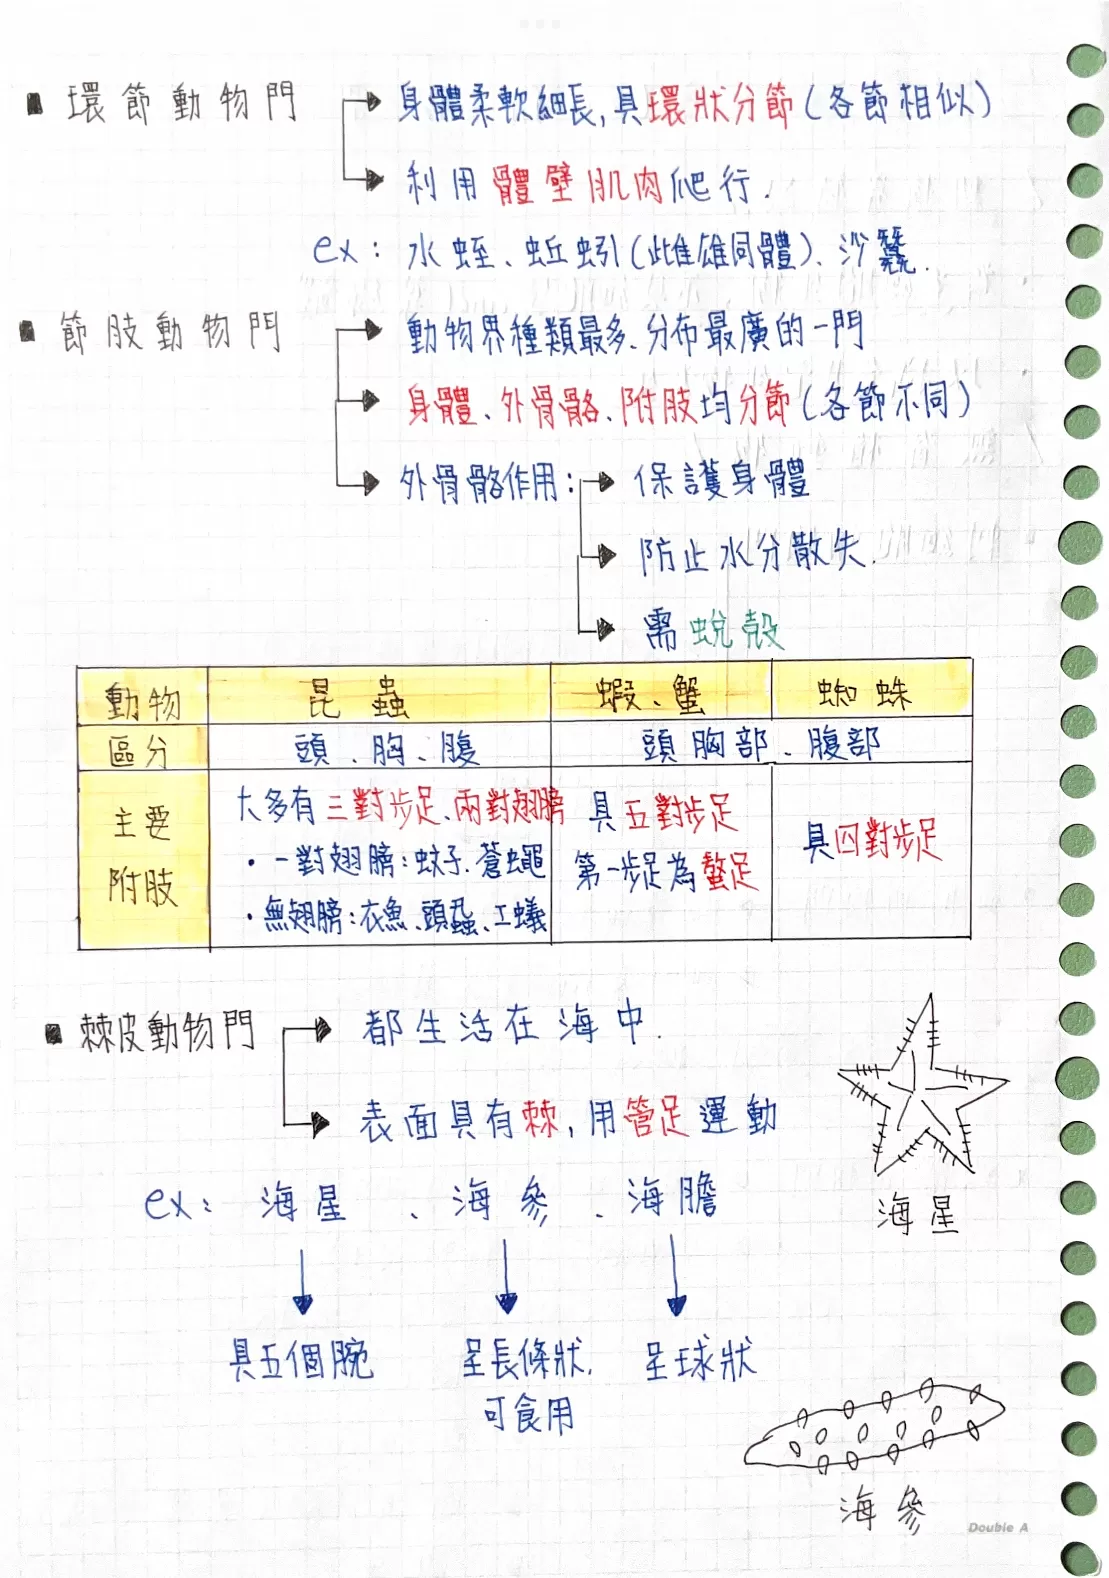 環節動物門
身體柔軟細長,具環狀分節(各節相似)
利用體壁肌肉爬行.
ex:水蛭、蚯蚓(雌雄同體)、沙蠶.
節肢動物門
動物界種類最多、分布最廣的一門
身體、外骨骼、附肢均分節(各節不同)
外骨骼作用:保護身體
防止水分散失.
需蛻殼
動物 昆蟲 蝦、蟹 蜘蛛
區分 頭、胸、腹 頭胸部、腹部
主要附肢
大多有三對步足、兩對翅膀
・一對翅膀:蚊子.蒼蠅
・無翅膀:衣魚、頭蝨、工蟻
具五對步足
第一步足為螯足
具四對步足
棘皮動物門
都生活在海中.
表面具有棘,用管足運動
ex:海星、海參、海膽
海星
具五個腕 呈長條狀. 呈球狀
可食用
海參
Double A